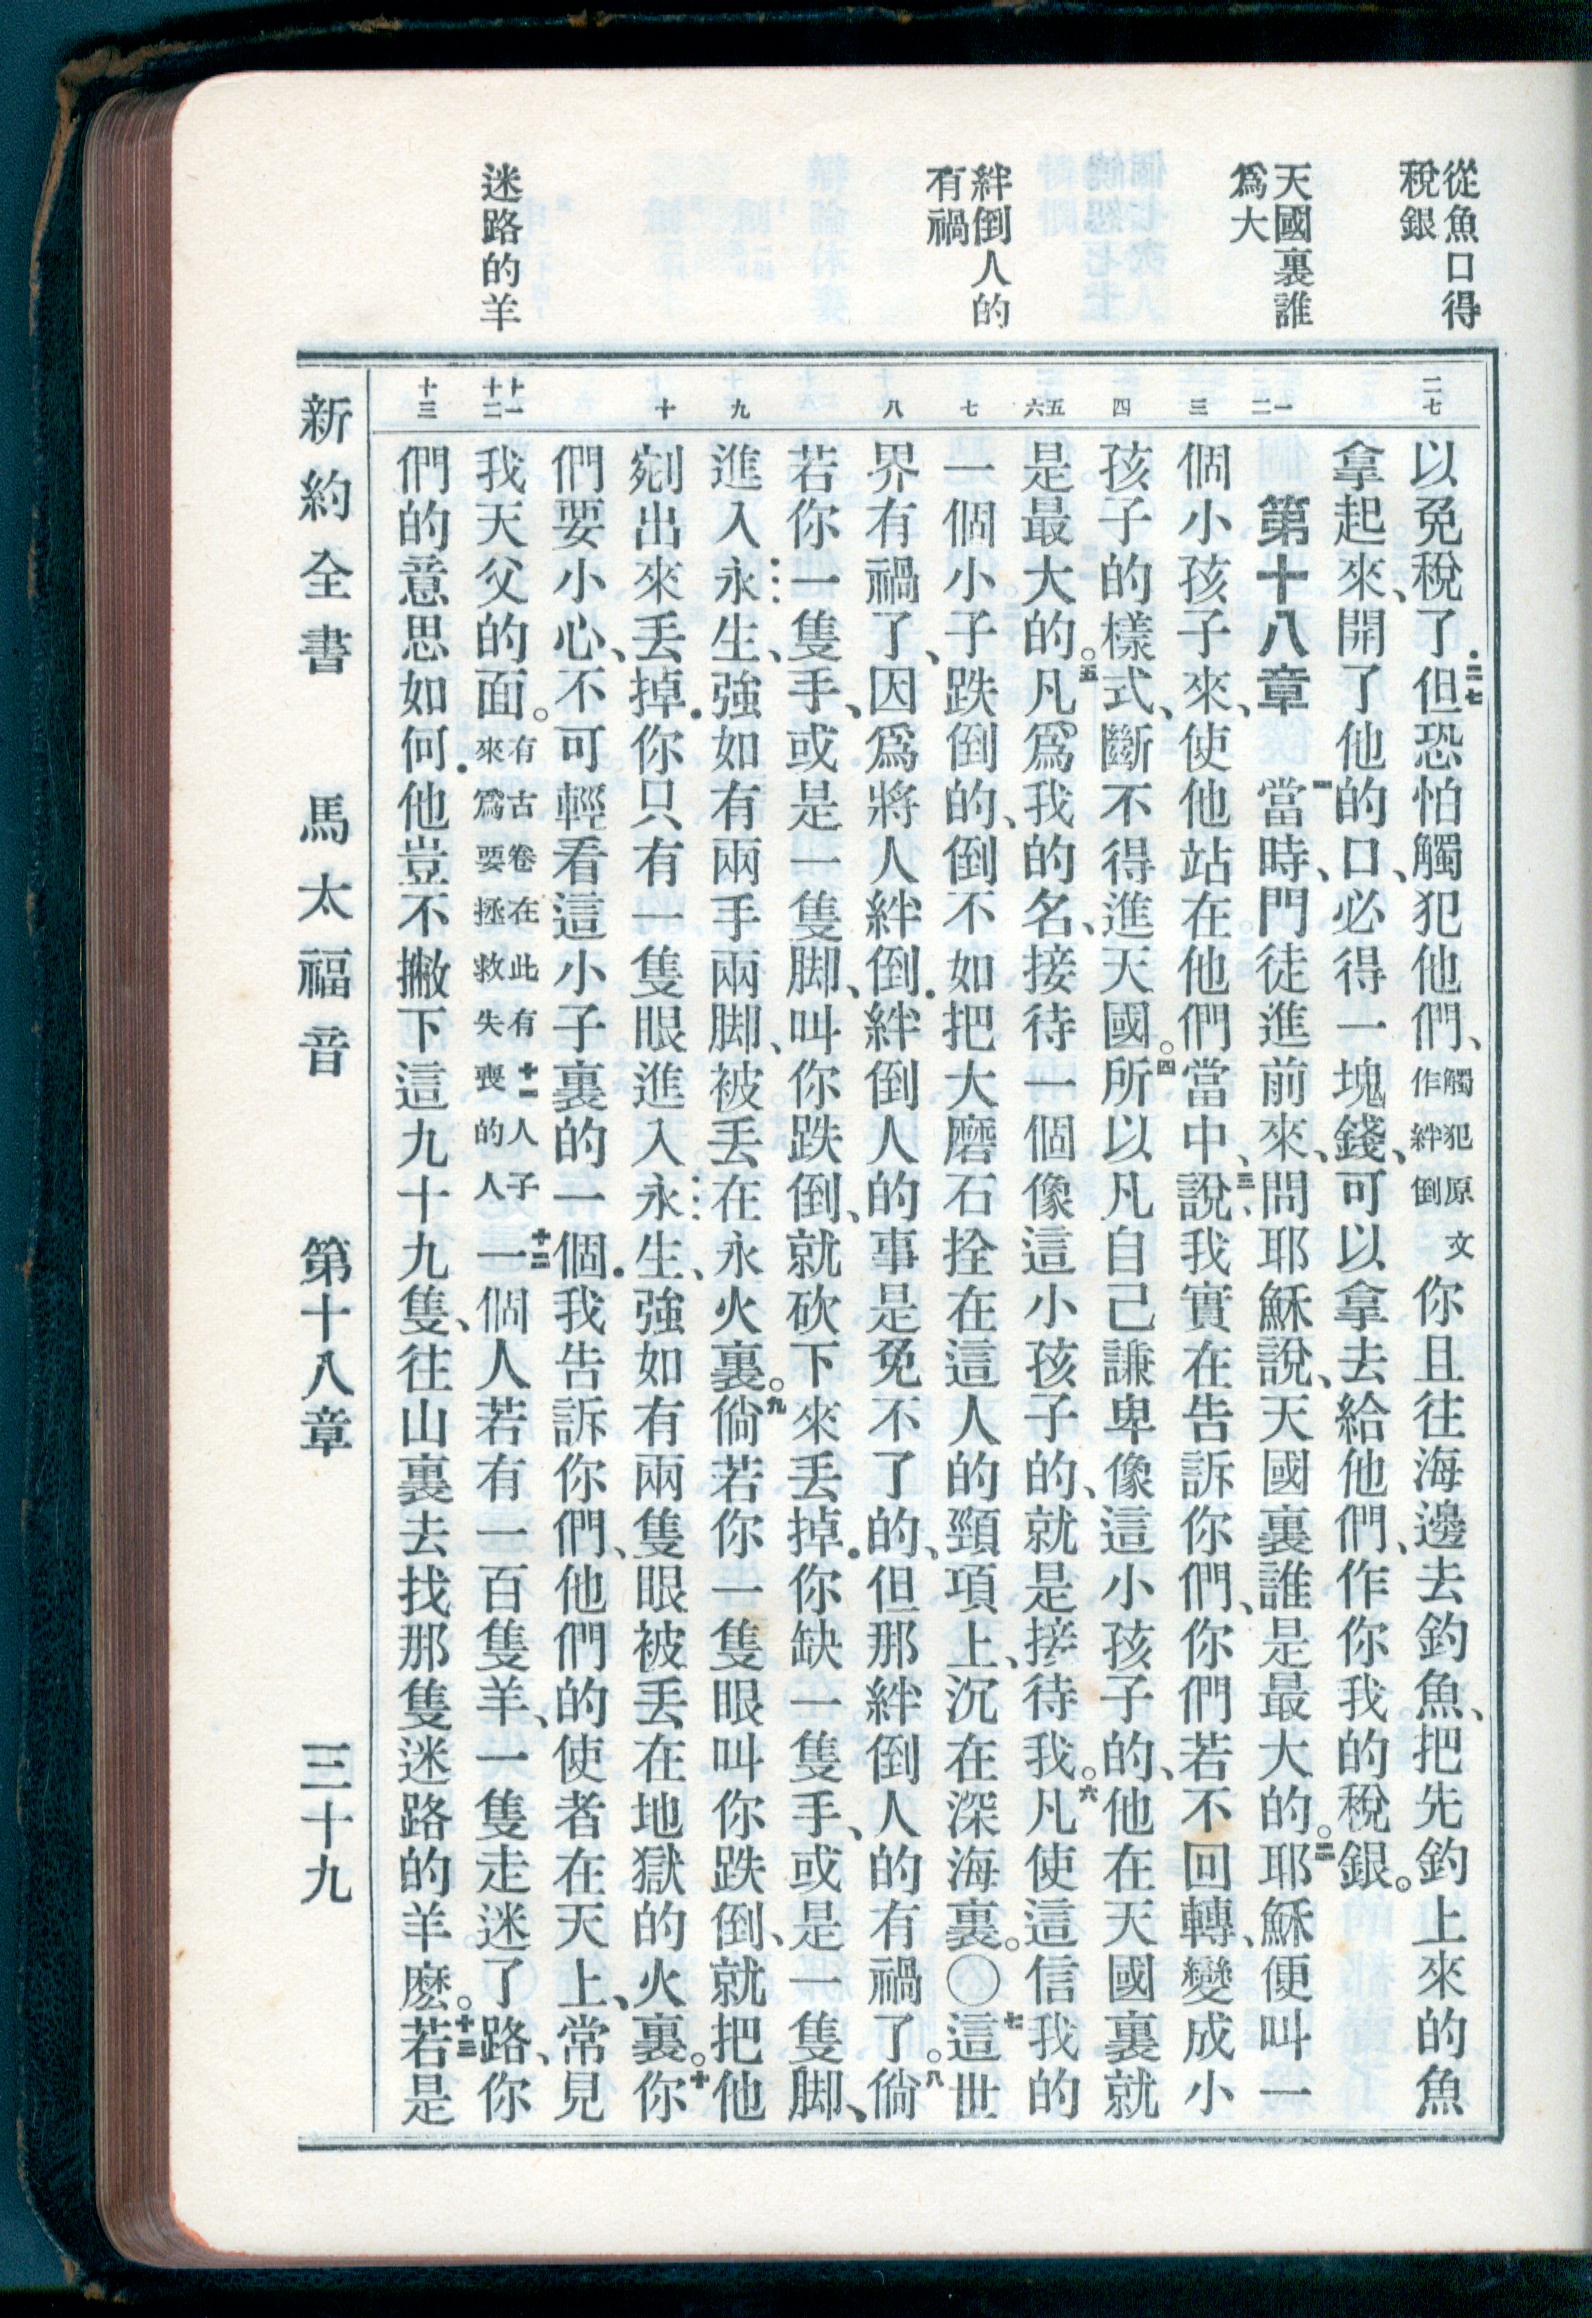 從魚口得
稅銀
天國裏誰
爲大
絆倒人的
有禍
迷路的羊
二七
一
二
三
四
五
六
七
八
九
十
十一
十二
十三
以免稅了·二七但恐怕觸犯他們、觸犯原文作絆倒你且往海邊去釣魚、把先釣上來的魚
拿起來、開了他的口、必得一塊錢、可以拿去給他們、作你我的稅銀。
第十八章 一當時、門徒進前來、問耶穌說、天國裏誰是最大的。二耶穌便叫一
個小孩子來、使他站在他們當中、三說、我實在告訴你們、你們若不回轉、變成小
孩子的樣式、斷不得進天國。四所以凡自己謙卑像這小孩子的、他在天國裏就
是最大的。五凡爲我的名、接待一個像這小孩子的、就是接待我。六凡使這信我的
一個小子跌倒的、倒不如把大磨石拴在這人的頸項上、沉在深海裏。〇七這世
界有禍了、因爲將人絆倒·絆倒人的事是免不了的、但那絆倒人的有禍了。八倘
若你一隻手、或是一隻脚、叫你跌倒、就砍下來丟掉·你缺一隻手、或是一隻脚、
進入永生、強如有兩手兩脚、被丟在永火裏。九倘若你一隻眼叫你跌倒、就把他
剜出來丟掉·你只有一隻眼進入永生、強如有兩隻眼被丟在地獄的火裏。十你
們要小心、不可輕看這小子裏的一個·我告訴你們、他們的使者在天上、常見
我天父的面。有古卷在此有十一人子來爲要拯救失喪的人十二一個人若有一百隻羊、一隻走迷了路、你
們的意思如何·他豈不撇下這九十九隻、往山裏去找那隻迷路的羊麼。十三若是
新約全書 馬太福音 第十八章 三十九